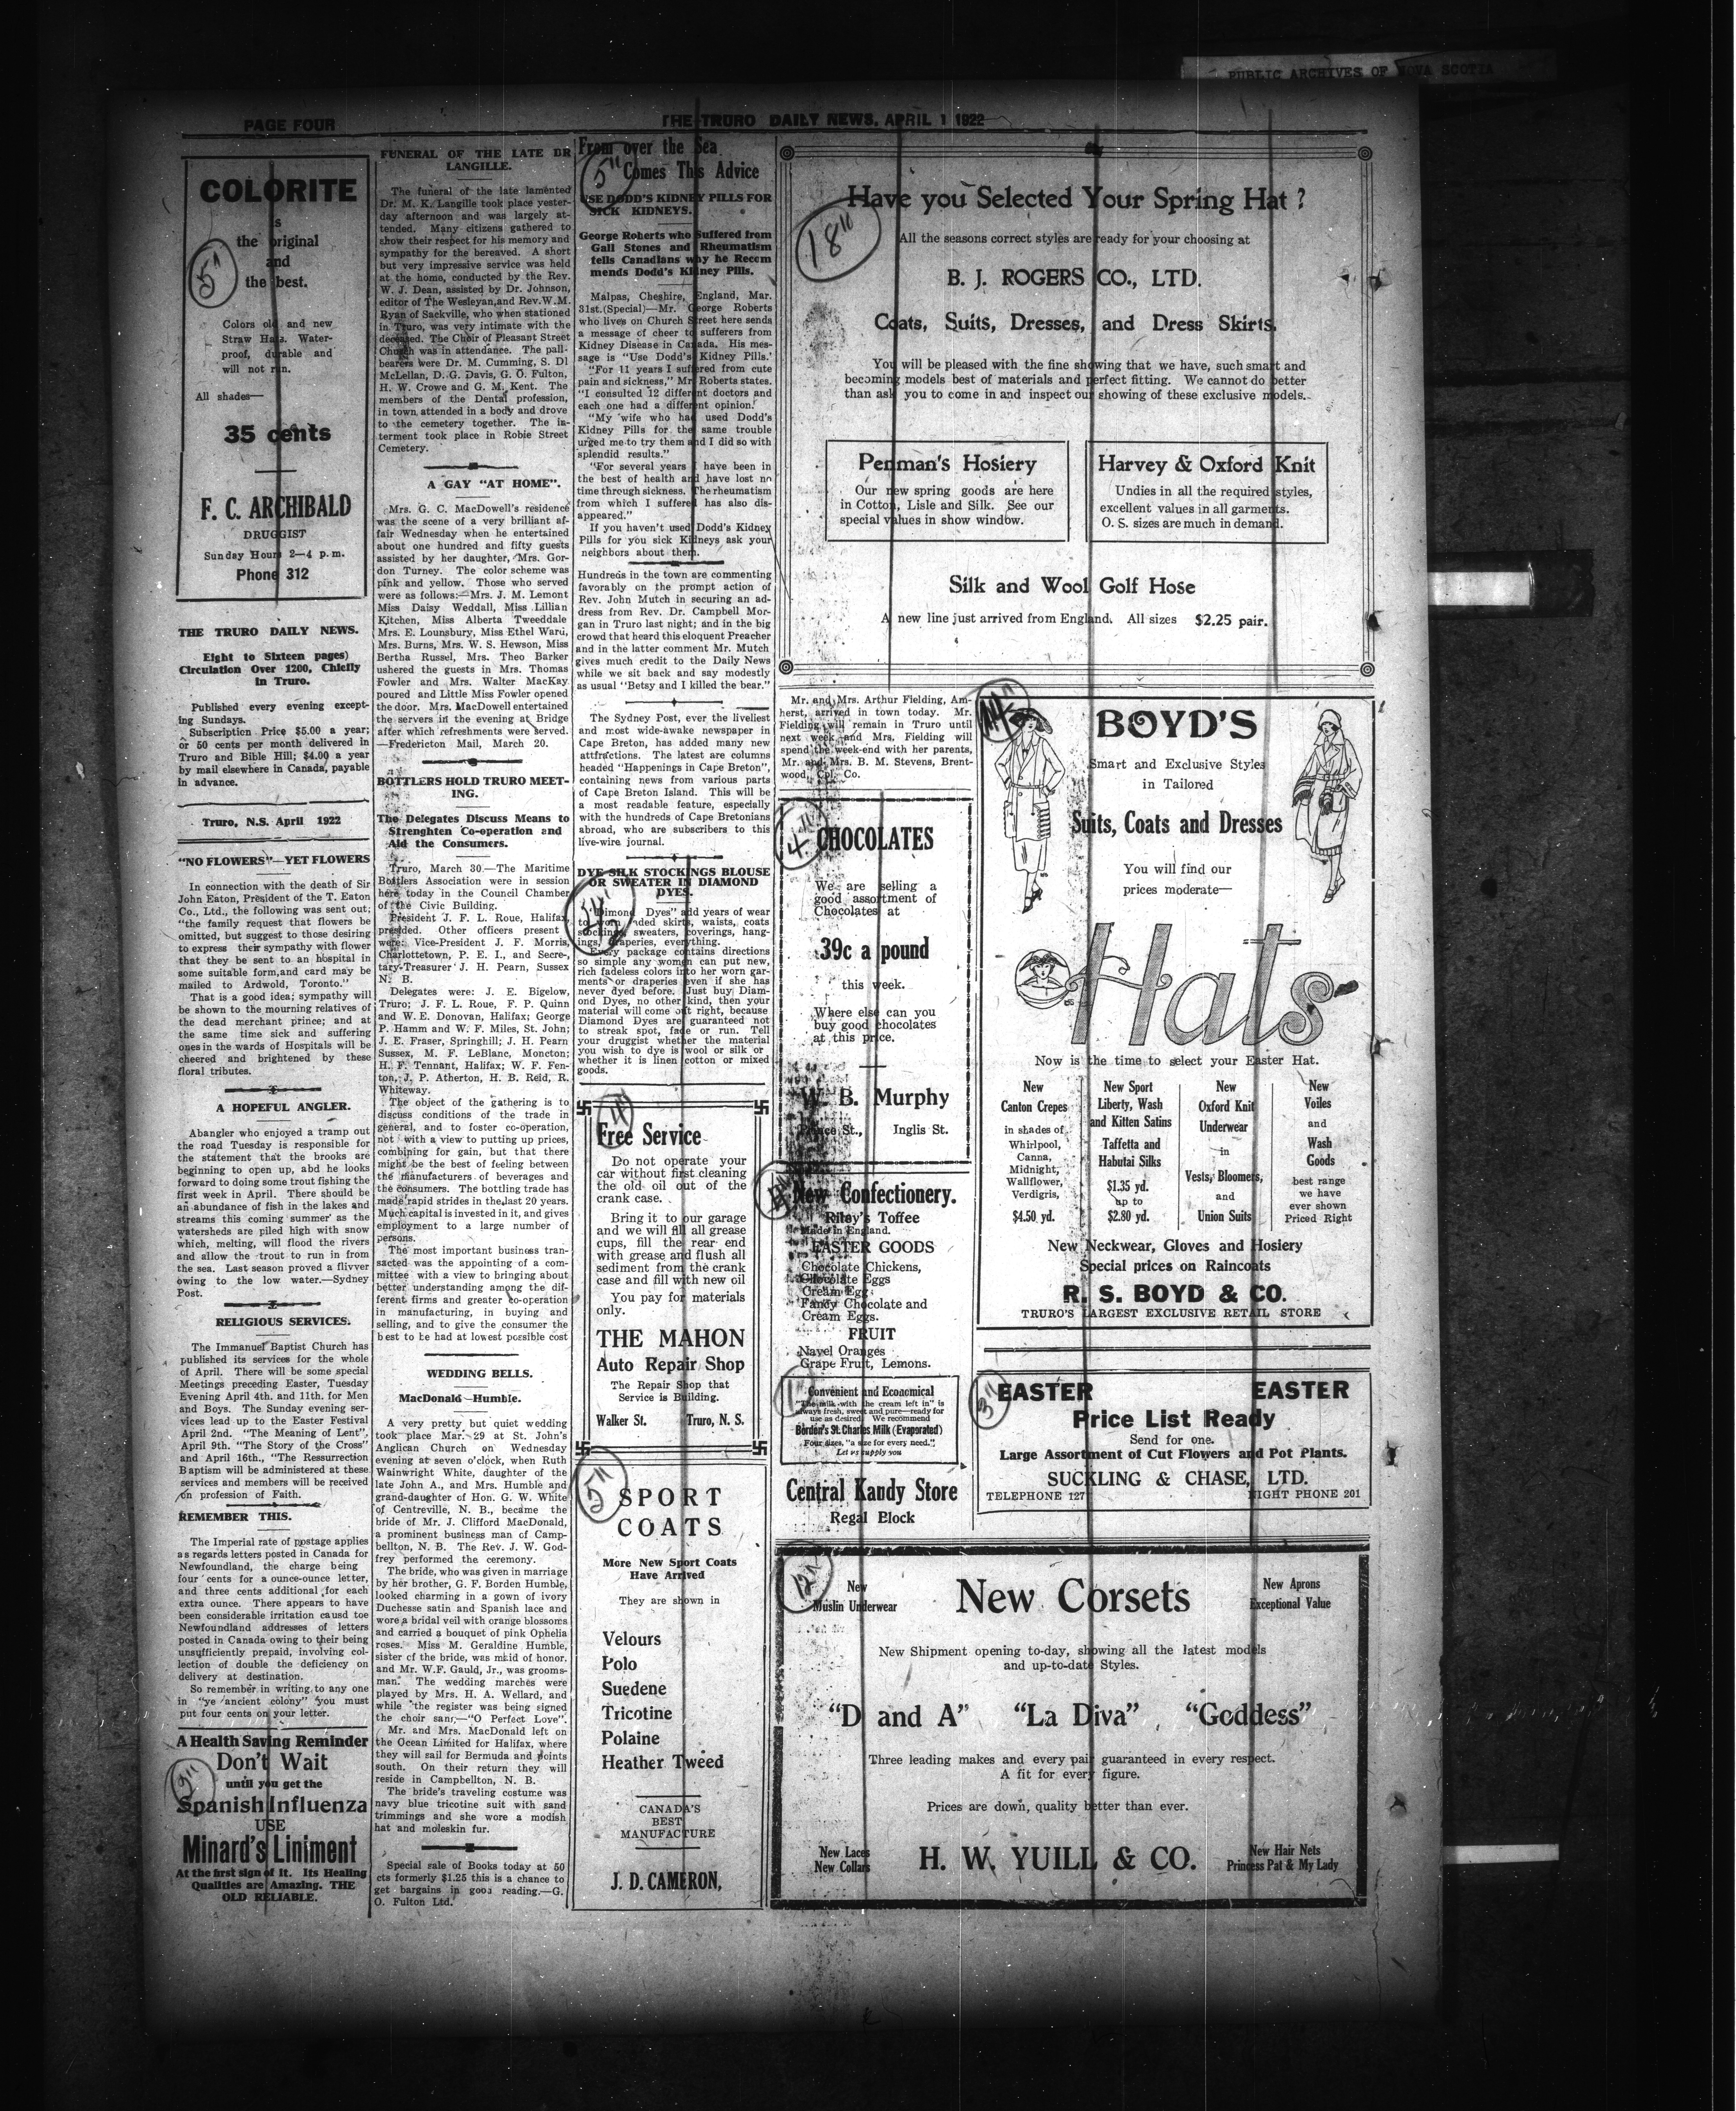 PUBLIC ARCHIVES OF NOVA SCOTIA
PAGE FOUR
THE TRURO DAILY NEWS, APRIL 1 1922
COLORITE
is
the original
and
the best.
Colors old and new
Straw Hats. Water-
proof, durable and
will not run.
All shades—
35 cents
F. C. ARCHIBALD
DRUGGIST
Sunday Hours 2—4 p. m.
Phone 312
THE TRURO DAILY NEWS.
Eight to Sixteen pages)
Circulation Over 1200, Chiefly
in Truro.
Published every evening except-
ing Sundays.
Subscription Price $5.00 a year;
or 50 cents per month delivered in
Truro and Bible Hill; $4.00 a year
by mail elsewhere in Canada, payable
in advance.
Truro, N.S. April 1922
"NO FLOWERS"—YET FLOWERS
In connection with the death of Sir
John Eaton, President of the T. Eaton
Co., Ltd., the following was sent out;
"the family request that flowers be
omitted, but suggest to those desiring
to express their sympathy with flower
that they be sent to an hospital in
some suitable form,and card may be
mailed to Ardwold, Toronto."
That is a good idea; sympathy will
be shown to the mourning relatives of
the dead merchant prince; and at
the same time sick and suffering
ones in the wards of Hospitals will be
cheered and brightened by these
floral tributes.
A HOPEFUL ANGLER.
Abangler who enjoyed a tramp out
the road Tuesday is responsible for
the statement that the brooks are
beginning to open up, abd he looks
forward to doing some trout fishing the
first week in April. There should be
an abundance of fish in the lakes and
streams this coming summer as the
watersheds are piled high with snow
which, melting, will flood the rivers
and allow the trout to run in from
the sea. Last season proved a flivver
owing to the low water.—Sydney
Post.
RELIGIOUS SERVICES.
The Immanuel Baptist Church has
published its services for the whole
of April. There will be some special
Meetings preceding Easter, Tuesday
Evening April 4th. and 11th. for Men
and Boys. The Sunday evening ser-
vices lead up to the Easter Festival
April 2nd. "The Meaning of Lent",
April 9th. "The Story of the Cross"
and April 16th., "The Ressurrection
Baptism will be administered at these
services and members will be received
on profession of Faith.
REMEMBER THIS.
The Imperial rate of postage applies
as regards letters posted in Canada for
Newfoundland, the charge being
four cents for a ounce-ounce letter,
and three cents additional for each
extra ounce. There appears to have
been considerable irritation causd toe
Newfoundland addresses of letters
posted in Canada owing to their being
unsufficiently prepaid, involving col-
lection of double the deficiency on
delivery at destination.
So remember in writing to any one
in "ye ancient colony" you must
put four cents on your letter.
A Health Saving Reminder
Don't Wait
until you get the
Spanish Influenza
USE
Minard's Liniment
At the first sign of It. Its Healing
Qualities are Amazing. THE
OLD RELIABLE.
FUNERAL OF THE LATE DR
LANGILLE.
The funeral of the late lamented
Dr. M. K. Langille took place yester-
day afternoon and was largely at-
tended. Many citizens gathered to
show their respect for his memory and
sympathy for the bereaved. A short
but very impressive service was held
at the home, conducted by the Rev.
W. J. Dean, assisted by Dr. Johnson,
editor of The Wesleyan,and Rev.W.M.
Ryan of Sackville, who when stationed
in Truro, was very intimate with the
deceased. The Choir of Pleasant Street
Church was in attendance. The pall-
bearers were Dr. M. Cumming, S. DI
McLellan, D. G. Davis, G. O. Fulton,
H. W. Crowe and G. M. Kent. The
members of the Dental profession,
in town attended in a body and drove
to the cemetery together. The in-
terment took place in Robie Street
Cemetery.
A GAY "AT HOME".
Mrs. G. C. MacDowell's residence
was the scene of a very brilliant af-
fair Wednesday when he entertained
about one hundred and fifty guests
assisted by her daughter, Mrs. Gor-
don Turney. The color scheme was
pink and yellow. Those who served
were as follows:—Mrs. J. M. Lemont
Miss Daisy Weddall, Miss Lillian
Kitchen, Miss Alberta Tweeddale
Mrs. E. Lounsbury, Miss Ethel Ward,
Mrs. Burns, Mrs. W. S. Hewson, Miss
Bertha Russel, Mrs. Theo Barker
ushered the guests in Mrs. Thomas
Fowler and Mrs. Walter MacKay
poured and Little Miss Fowler opened
the door. Mrs. MacDowell entertained
the servers in the evening at Bridge
after which refreshments were served.
—Fredericton Mail, March 20.
BOTTLERS HOLD TRURO MEET-
ING.
The Delegates Discuss Means to
Strenghten Co-operation and
Aid the Consumers.
Truro, March 30.—The Maritime
Bottlers Association were in session
here today in the Council Chamber
of the Civic Building.
President J. F. L. Roue, Halifax,
presided. Other officers present
were: Vice-President J. F. Morris,
Charlottetown, P. E. I., and Secre-,
tary-Treasurer J. H. Pearn, Sussex
N. B.
Delegates were: J. E. Bigelow,
Truro; J. F. L. Roue, F. P. Quinn
and W. E. Donovan, Halifax; George
P. Hamm and W. F. Miles, St. John;
J. E. Fraser, Springhill; J. H. Pearn
Sussex, M. F. LeBlanc, Moncton;
H. F. Tennant, Halifax; W. F. Fen-
ton, J. P. Atherton, H. B. Reid, R.
Whiteway.
The object of the gathering is to
discuss conditions of the trade in
general, and to foster co-operation,
not with a view to putting up prices,
combining for gain, but that there
might be the best of feeling between
the manufacturers of beverages and
the consumers. The bottling trade has
made rapid strides in the last 20 years.
Much capital is invested in it, and gives
employment to a large number of
persons.
The most important business tran-
sacted was the appointing of a com-
mittee with a view to bringing about
better understanding among the dif-
ferent firms and greater co-operation
in manufacturing, in buying and
selling, and to give the consumer the
best to be had at lowest possible cost
WEDDING BELLS.
MacDonald—Humble.
A very pretty but quiet wedding
took place Mar. 29 at St. John's
Anglican Church on Wednesday
evening at seven o'clock, when Ruth
Wainwright White, daughter of the
late John A., and Mrs. Humble and
grand-daughter of Hon. G. W. White
of Centreville, N. B., became the
bride of Mr. J. Clifford MacDonald,
a prominent business man of Camp-
bellton, N. B. The Rev. J. W. God-
frey performed the ceremony.
The bride, who was given in marriage
by her brother, G. F. Borden Humble,
looked charming in a gown of ivory
Duchesse satin and Spanish lace and
wore a bridal veil with orange blossoms
and carried a bouquet of pink Ophelia
roses. Miss M. Geraldine Humble,
sister of the bride, was maid of honor.
and Mr. W.F. Gauld, Jr., was grooms-
man. The wedding marches were
played by Mrs. H. A. Wellard, and
while the register was being signed
the choir sang—"O Perfect Love".
Mr. and Mrs. MacDonald left on
the Ocean Limited for Halifax, where
they will sail for Bermuda and points
south. On their return they will
reside in Campbellton, N. B.
The bride's traveling costume was
navy blue tricotine suit with sand
trimmings and she wore a modish
hat and moleskin fur.
Special sale of Books today at 50
cts formerly $1.25 this is a chance to
get bargains in good reading.—G.
O. Fulton Ltd.
From over the Sea
Comes This Advice
5"
USE DODD'S KIDNEY PILLS FOR
SICK KIDNEYS.
George Roberts who Suffered from
Gall Stones and Rheumatism
tells Canadians why he Recom
mends Dodd's Kidney Pills.
Malpas, Cheshire, England, Mar.
31st.(Special)—Mr. George Roberts
who lives on Church Street here sends
a message of cheer to sufferers from
Kidney Disease in Canada. His mes-
sage is "Use Dodd's Kidney Pills.'
"For 11 years I suffered from cute
pain and sickness," Mr. Roberts states.
"I consulted 12 different doctors and
each one had a different opinion.'
"My wife who had used Dodd's
Kidney Pills for the same trouble
urged me to try them and I did so with
splendid results."
"For several years I have been in
the best of health and have lost no
time through sickness. The rheumatism
from which I suffered has also dis-
appeared."
If you haven't used Dodd's Kidney
Pills for you sick Kidneys ask your
neighbors about them.
Hundreds in the town are commenting
favorably on the prompt action of
Rev. John Mutch in securing an ad-
dress from Rev. Dr. Campbell Mor-
gan in Truro last night; and in the big
crowd that heard this eloquent Preacher
and in the latter comment Mr. Mutch
gives much credit to the Daily News
while we sit back and say modestly
as usual "Betsy and I killed the bear."
The Sydney Post, ever the liveliest
and most wide-awake newspaper in
Cape Breton, has added many new
attfractions. The latest are columns
headed "Happenings in Cape Breton",
containing news from various parts
of Cape Breton Island. This will be
a most readable feature, especially
with the hundreds of Cape Bretonians
abroad, who are subscribers to this
live-wire journal.
DYE SILK STOCKINGS BLOUSE
OR SWEATER IN DIAMOND
DYES.
"Dimond Dyes" add years of wear
to worn faded skirts, waists, coats
stockings, sweaters, coverings, hang-
ings, draperies, everything.
Every package contains directions
so simple any women can put new,
rich fadeless colors into her worn gar-
ments or draperies even if she has
never dyed before. Just buy Diam-
ond Dyes, no other kind, then your
material will come out right, because
Diamond Dyes are guaranteed not
to streak spot, fade or run. Tell
your druggist whether the material
you wish to dye is wool or silk or
whether it is linen cotton or mixed
goods.
Free Service
Do not operate your
car without first cleaning
the old oil out of the
crank case.
Bring it to our garage
and we will fill all grease
cups, fill the rear end
with grease and flush all
sediment from the crank
case and fill with new oil
You pay for materials
only.
THE MAHON
Auto Repair Shop
The Repair Shop that
Service is Building.
Walker St. Truro, N. S.
5"
SPORT
COATS
More New Sport Coats
Have Arrived
They are shown in
Velours
Polo
Suedene
Tricotine
Polaine
Heather Tweed
CANADA'S
BEST
MANUFACTURE
J. D. CAMERON,
18"
Have you Selected Your Spring Hat ?
All the seasons correct styles are ready for your choosing at
B. J. ROGERS CO., LTD.
Coats, Suits, Dresses, and Dress Skirts.
You will be pleased with the fine showing that we have, such smart and
becoming models best of materials and perfect fitting. We cannot do better
than ask you to come in and inspect our showing of these exclusive models.
Penman's Hosiery
Our new spring goods are here
in Cotton, Lisle and Silk. See our
special values in show window.
Harvey & Oxford Knit
Undies in all the required styles,
excellent values in all garments.
O. S. sizes are much in demand.
Silk and Wool Golf Hose
A new line just arrived from England. All sizes $2.25 pair.
Mr. and Mrs. Arthur Fielding, Am-
herst, arrived in town today. Mr.
Fielding will remain in Truro until
next week and Mrs. Fielding will
spend the week-end with her parents,
Mr. and Mrs. B. M. Stevens, Brent-
wood, Col. Co.
4"
CHOCOLATES
We are selling a
good assortment of
Chocolates at
39c a pound
this week.
Where else can you
buy good chocolates
at this price.
W. B. Murphy
Prince St., Inglis St.
New Confectionery.
Riley's Toffee
Made in England.
EASTER GOODS
Chocolate Chickens,
Chocolate Eggs
Cream Egg
Fancy Chocolate and
Cream Eggs.
FRUIT
Navel Oranges
Grape Fruit, Lemons.
1"
Convenient and Economical
"The milk with the cream left in" is
always fresh, sweet and pure—ready for
use as desired. We recommend
Borden's St. Charles Milk (Evaporated)
Four sizes, "a size for every need."
Let us supply you
Central Kandy Store
Regal Block
14"
BOYD'S
Smart and Exclusive Styles
in Tailored
Suits, Coats and Dresses
You will find our
prices moderate—
Hats
Now is the time to select your Easter Hat.
New
Canton Crepes
in shades of
Whirlpool,
Canna,
Midnight,
Wallflower,
Verdigris,
$4.50 yd.
New Sport
Liberty, Wash
and Kitten Satins
Taffetta and
Habutai Silks
$1.35 yd.
up to
$2.80 yd.
New
Oxford Knit
Underwear
in
Vests, Bloomers,
and
Union Suits
New
Voiles
and
Wash
Goods
best range
we have
ever shown
Priced Right
New Neckwear, Gloves and Hosiery
Special prices on Raincoats
R. S. BOYD & CO.
TRURO'S LARGEST EXCLUSIVE RETAIL STORE
3"
EASTER EASTER
Price List Ready
Send for one.
Large Assortment of Cut Flowers and Pot Plants.
SUCKLING & CHASE, LTD.
TELEPHONE 127 NIGHT PHONE 201
12"
New
Muslin Underwear
New Corsets
New Aprons
Exceptional Value
New Shipment opening to-day, showing all the latest models
and up-to-date Styles.
"D and A" "La Diva" "Goddess"
Three leading makes and every pair guaranteed in every respect.
A fit for every figure.
Prices are down, quality better than ever.
New Laces
New Collars
H. W. YUILL & CO.
New Hair Nets
Princess Pat & My Lady